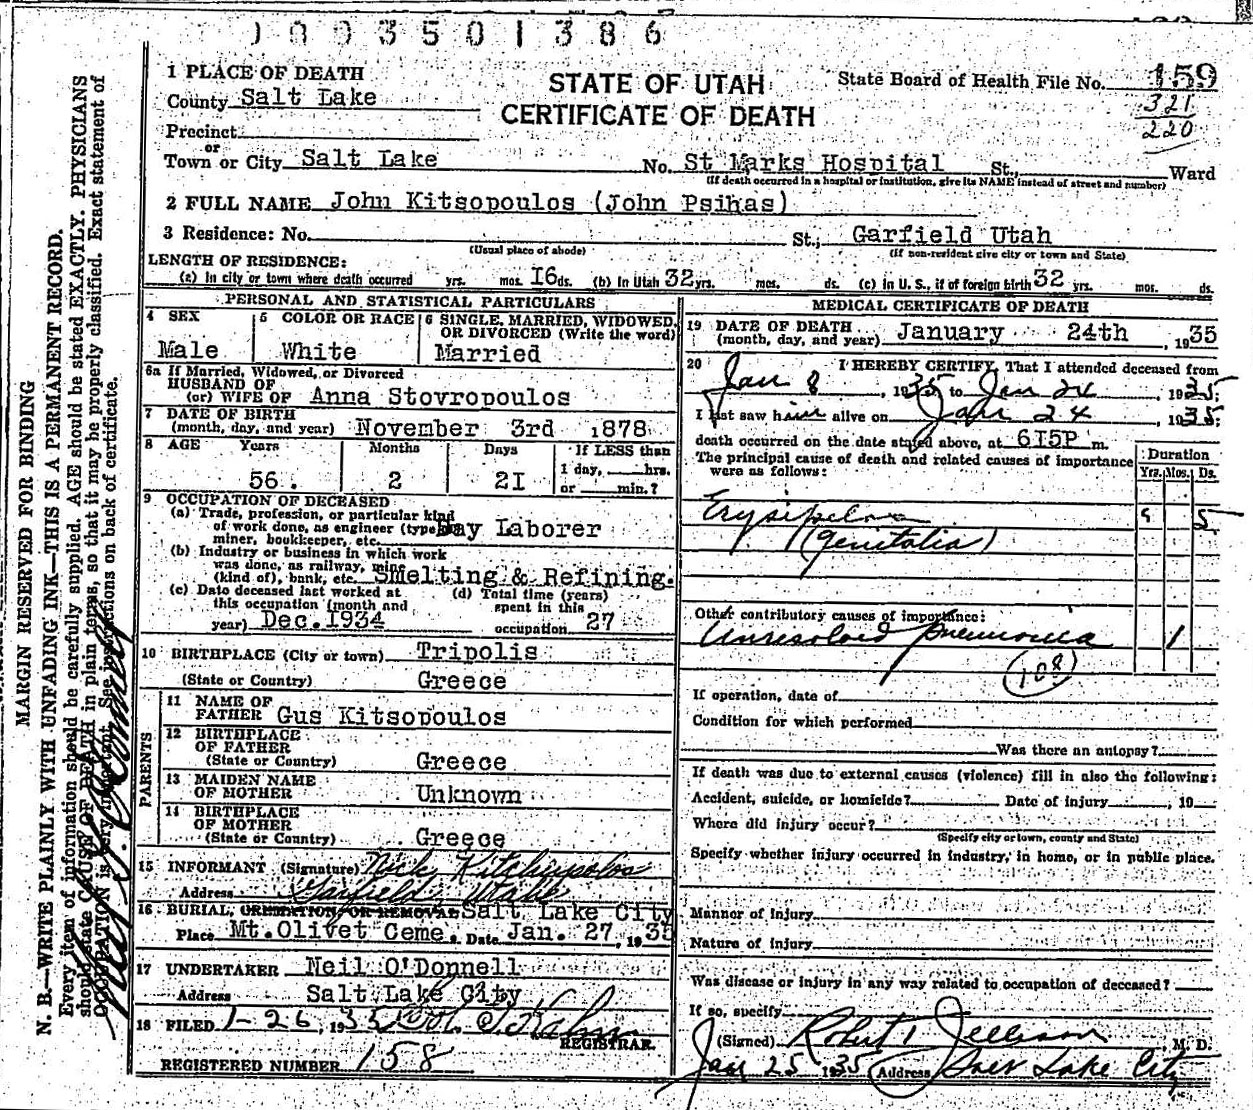 0003501386
1 PLACE OF DEATH
County Salt Lake
Precinct
or
Town or City Salt Lake
STATE OF UTAH
CERTIFICATE OF DEATH
State Board of Health File No. 159
321
220
No. St Marks Hospital St., Ward
(If death occurred in a hospital or institution, give its NAME instead of street and number)
2 FULL NAME John Kitsopoulos (John Psihas)
3 Residence: No. St., Garfield Utah
(Usual place of abode) (If non-resident give city or town and State)
LENGTH OF RESIDENCE:
(a) In city or town where death occurred yrs. mos. 16 ds. (b) In Utah 32 yrs. mos. ds. (c) In U. S., if of foreign birth 32 yrs. mos. ds.
PERSONAL AND STATISTICAL PARTICULARS
4 SEX Male
5 COLOR OR RACE White
6 SINGLE, MARRIED, WIDOWED, OR DIVORCED (Write the word) Married
6a If Married, Widowed, or Divorced
HUSBAND OF
(or) WIFE OF Anna Stovropoulos
7 DATE OF BIRTH
(month, day, and year) November 3rd 1878
8 AGE Years 56. Months 2 Days 21 If LESS than
1 day, hrs.
or min.?
9 OCCUPATION OF DECEASED
(a) Trade, profession, or particular kind
of work done, as engineer (type Day Laborer
miner, bookkeeper, etc.
(b) Industry or business in which work
was done, as railway, mine
(kind of), bank, etc. Smelting & Refining.
(c) Date deceased last worked at
this occupation (month and
year) Dec. 1934
(d) Total time (years)
spent in this
occupation 27
10 BIRTHPLACE (City or town) Tripolis
(State or Country) Greece
PARENTS
11 NAME OF
FATHER Gus Kitsopoulos
12 BIRTHPLACE
OF FATHER
(State or Country) Greece
13 MAIDEN NAME
OF MOTHER Unknown
14 BIRTHPLACE
OF MOTHER
(State or Country) Greece
15 INFORMANT (Signature) Nick Kitchiopolos
Address Garfield, Utah
16 BURIAL, CREMATION, OR REMOVAL Salt Lake City
Place Mt. Olivet Ceme. Date Jan. 27, 1935
17 UNDERTAKER Neil O'Donnell
Address Salt Lake City
18 FILED 1-26, 1935
REGISTRAR.
REGISTERED NUMBER 158
MEDICAL CERTIFICATE OF DEATH
19 DATE OF DEATH
(month, day, and year) January 24th, 1935
20 I HEREBY CERTIFY, That I attended deceased from
Jan 8, 1935, to Jan 24, 1935;
I last saw him alive on Jan 24 1935;
death occurred on the date stated above, at 615P m.
The principal cause of death and related causes of importance
were as follows:
Duration
Yrs. Mos. Ds.
Erysipelas 5
(genitalia)
Other contributory causes of importance:
Unresolved pneumonia 1
108
If operation, date of
Condition for which performed
Was there an autopsy?
If death was due to external causes (violence) fill in also the following:
Accident, suicide, or homicide? Date of injury , 19
Where did injury occur?
(Specify city or town, county and State)
Specify whether injury occurred in industry, in home, or in public place.
Manner of injury
Nature of injury
Was disease or injury in any way related to occupation of deceased?
If so, specify
(Signed) Robert T Jellison, M. D.
Jan 25 1935 Address Salt Lake City
MARGIN RESERVED FOR BINDING
N. B.—WRITE PLAINLY WITH UNFADING INK—THIS IS A PERMANENT RECORD.
Every item of information should be carefully supplied. AGE should be stated EXACTLY. PHYSICIANS
should state CAUSE OF DEATH in plain terms, so that it may be properly classified. Exact statement of
OCCUPATION is very important. See instructions on back of certificate.